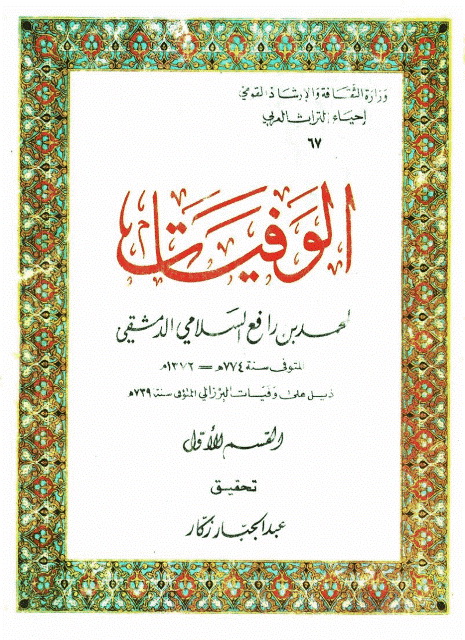 وزارة الثقافة والإرشاد القومي
إحياء التراث العربي
٦٧
الوفيات
لمحمد بن رافع السلامي الدمشقي
المتوفى سنة ٧٧٤هـ = ١٣٧٢م
ذيل على وفيات البرزالي المتوفى سنة ٧٣٩هـ
القسم الأول
تحقيق
عبد الجبار زكار